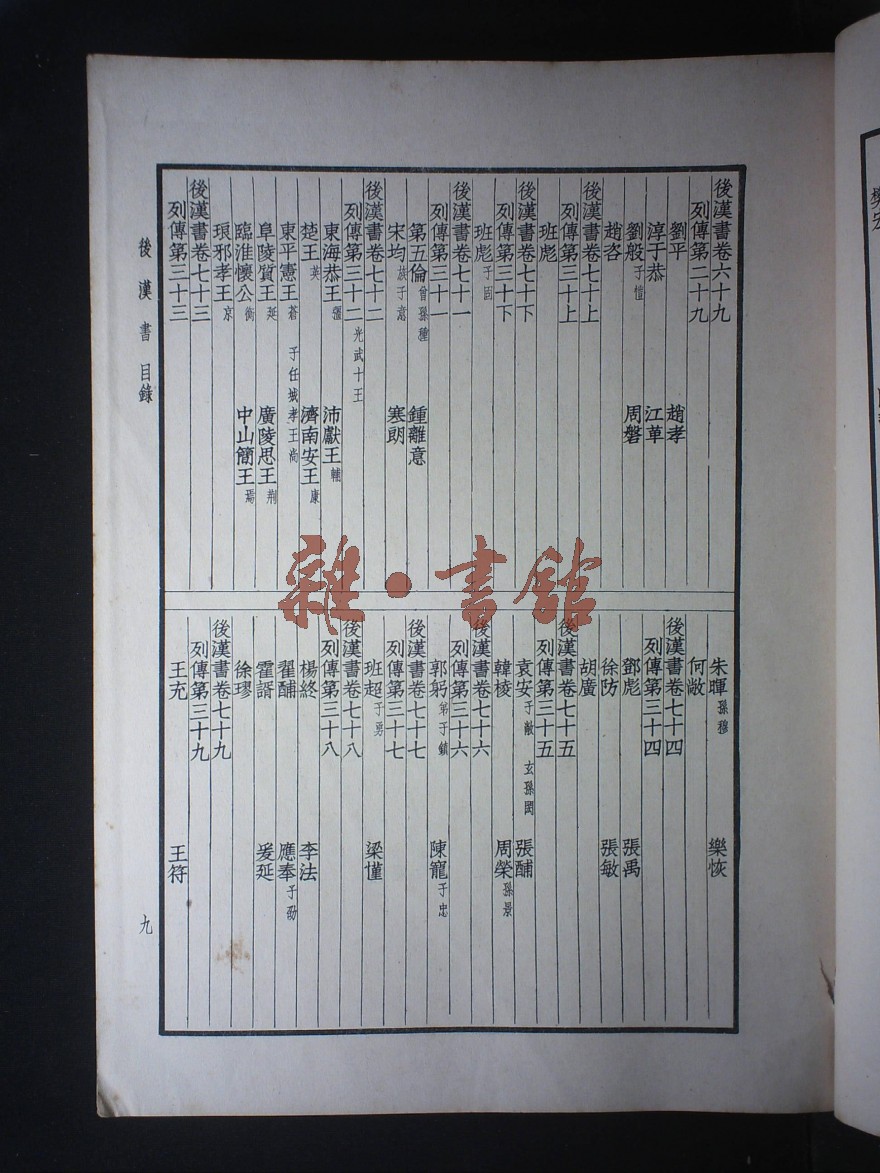 後漢書卷六十九
列傳第二十九
劉平 趙孝
淳于恭 江革
劉般子愷 周磐
趙咨
後漢書卷七十上
列傳第三十上
班彪
後漢書卷七十下
列傳第三十下
班彪子固
後漢書卷七十一
列傳第三十一
第五倫曾孫種 鍾離意
宋均族子意 寒朗
後漢書卷七十二
列傳第三十二光武十王
東海恭王彊 沛獻王輔
楚王英 濟南安王康
東平憲王蒼 子任城孝王尚
阜陵質王延 廣陵思王荆
臨淮懷公衡 中山簡王焉
琅邪孝王京
後漢書卷七十三
列傳第三十三
朱暉孫穆 樂恢
何敞
後漢書卷七十四
列傳第三十四
鄧彪 張禹
徐防 張敏
胡廣
後漢書卷七十五
列傳第三十五
袁安子敞 玄孫閎 張酺
韓棱 周榮孫景
後漢書卷七十六
列傳第三十六
郭躬弟子鎮 陳寵子忠
後漢書卷七十七
列傳第三十七
班超子勇 梁慬
後漢書卷七十八
列傳第三十八
楊終 李法
翟酺 應奉子劭
霍諝 爰延
徐璆
後漢書卷七十九
列傳第三十九
王充 王符
後漢書 目錄
九
雜·書館
樊宏